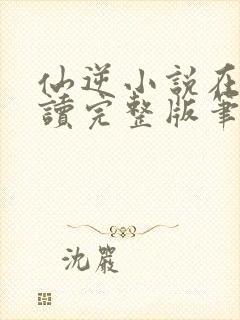 仙逆小説在
讀完整版筆
沈嚴